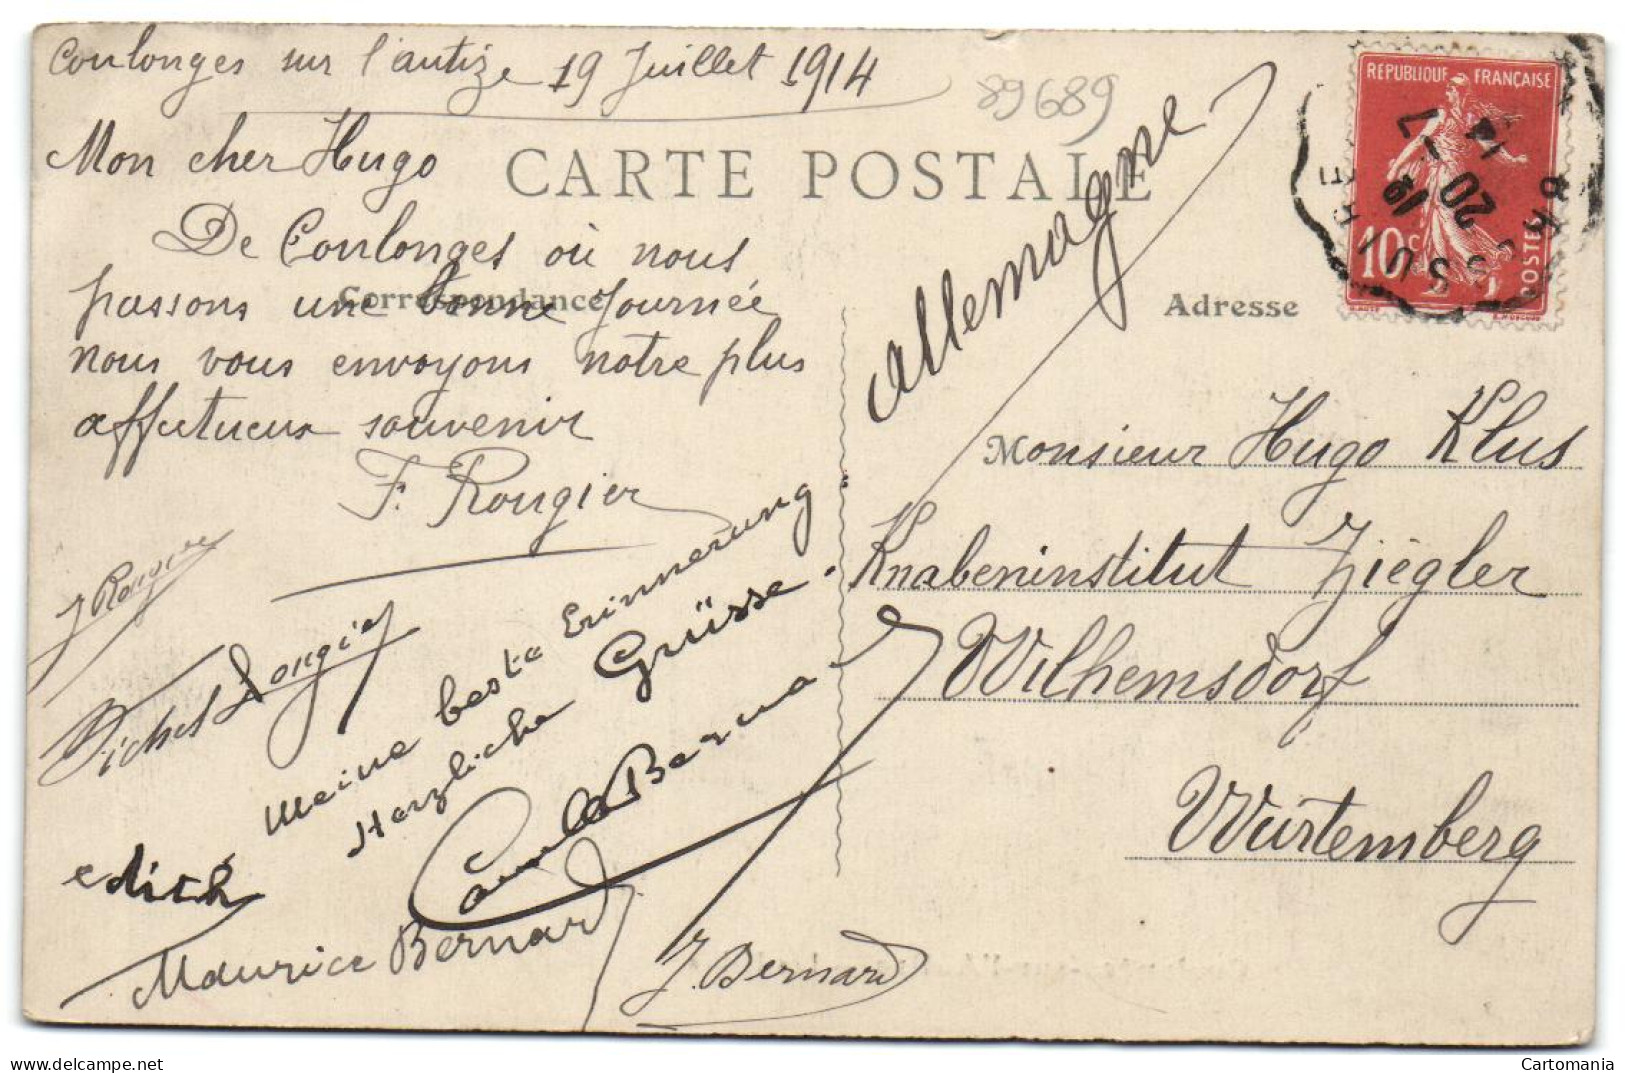 Coulonges sur l'autize 19 Juillet 1914
89689
Mon cher Hugo
CARTE POSTALE
De Coulonges où nous
passons une bonne Journée
nous vous envoyons notre plus
affectueux souvenir
F. Rougier
Correspondance
J Rougier
Michel Rougier
Meine beste Erinnerung
Herzliche Grüsse.
Camille Bernard
edith
Maurice Bernard
J. Bernard
Allemagne
Adresse
Monsieur Hugo Klus
Knabeninstitut Ziègler
Wilhemsdorf
Würtemberg
REPUBLIQUE FRANÇAISE
10c
POSTES
BRESSUIRE
19
20
7
14
Cartomania